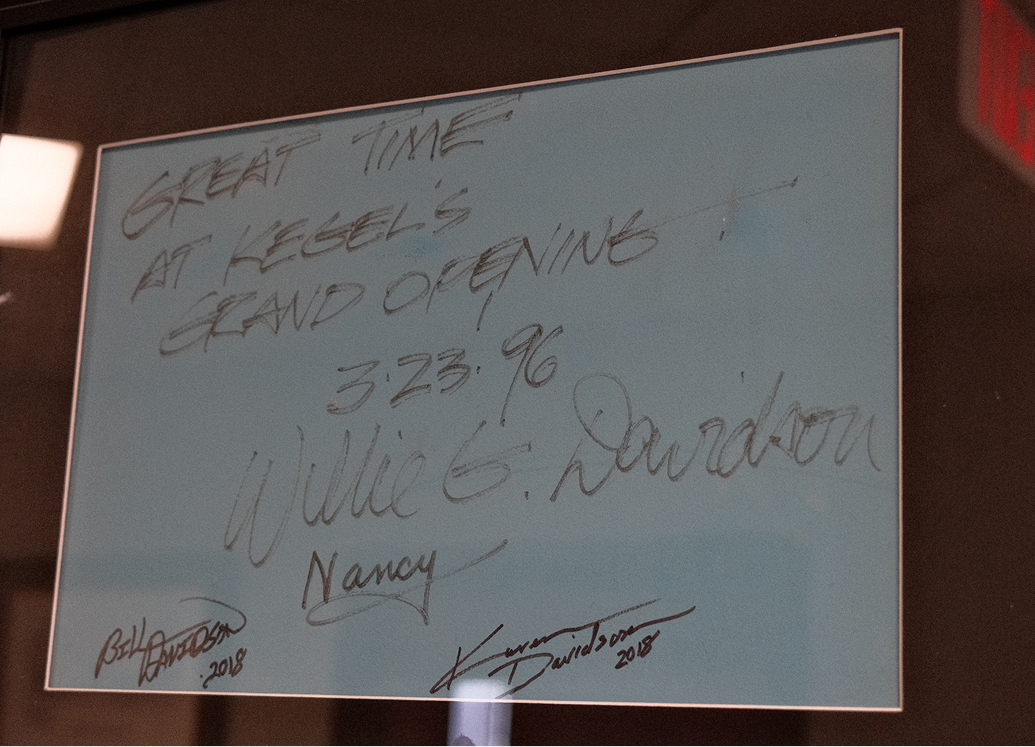 GREAT TIME
AT KEGEL'S
GRAND OPENING!
3·23·96
Willie G. Davidson
Nancy
BILL DAVIDSON
2018
Karen Davidson
2018